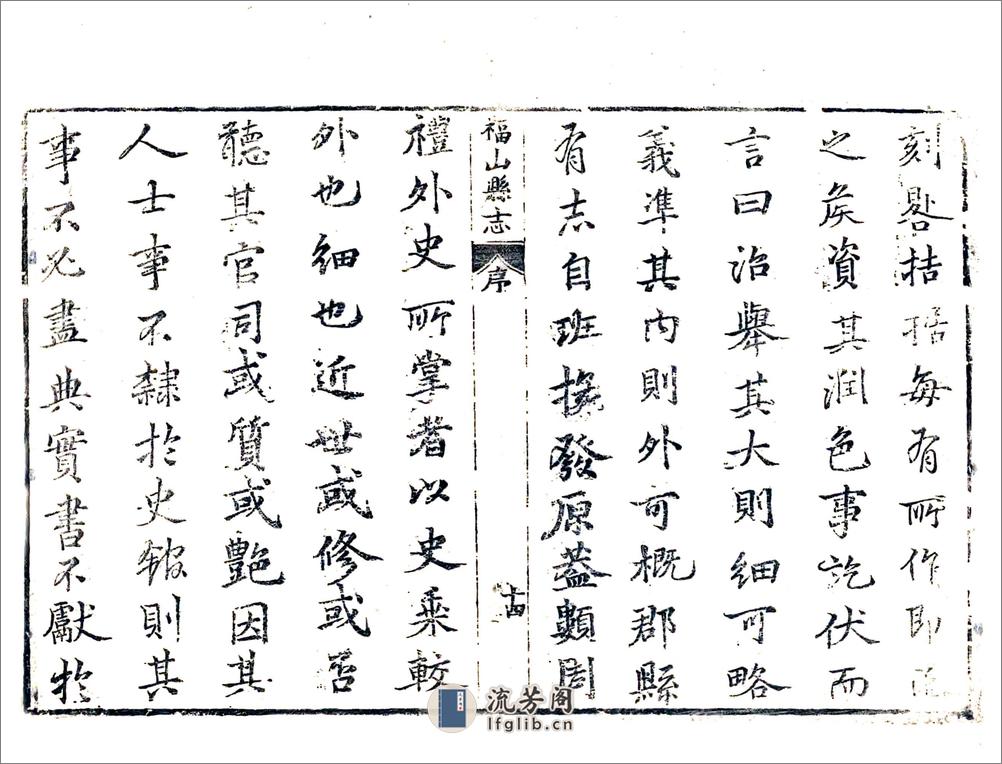 刻晷拮据每有所作即正
之矦資其润色事訖伏而
言曰治舉其大則細可略
義準其内則外可概郡縣
有志自班掾發原葢顓周
福山縣志
序
十四
禮外史所掌者以史乘較
外也細也近世或修或否
聽其官司或質或艶因其
人士事不隸於史館則其
事不必盡典實書不獻於
流芳阁
lfglib.cn